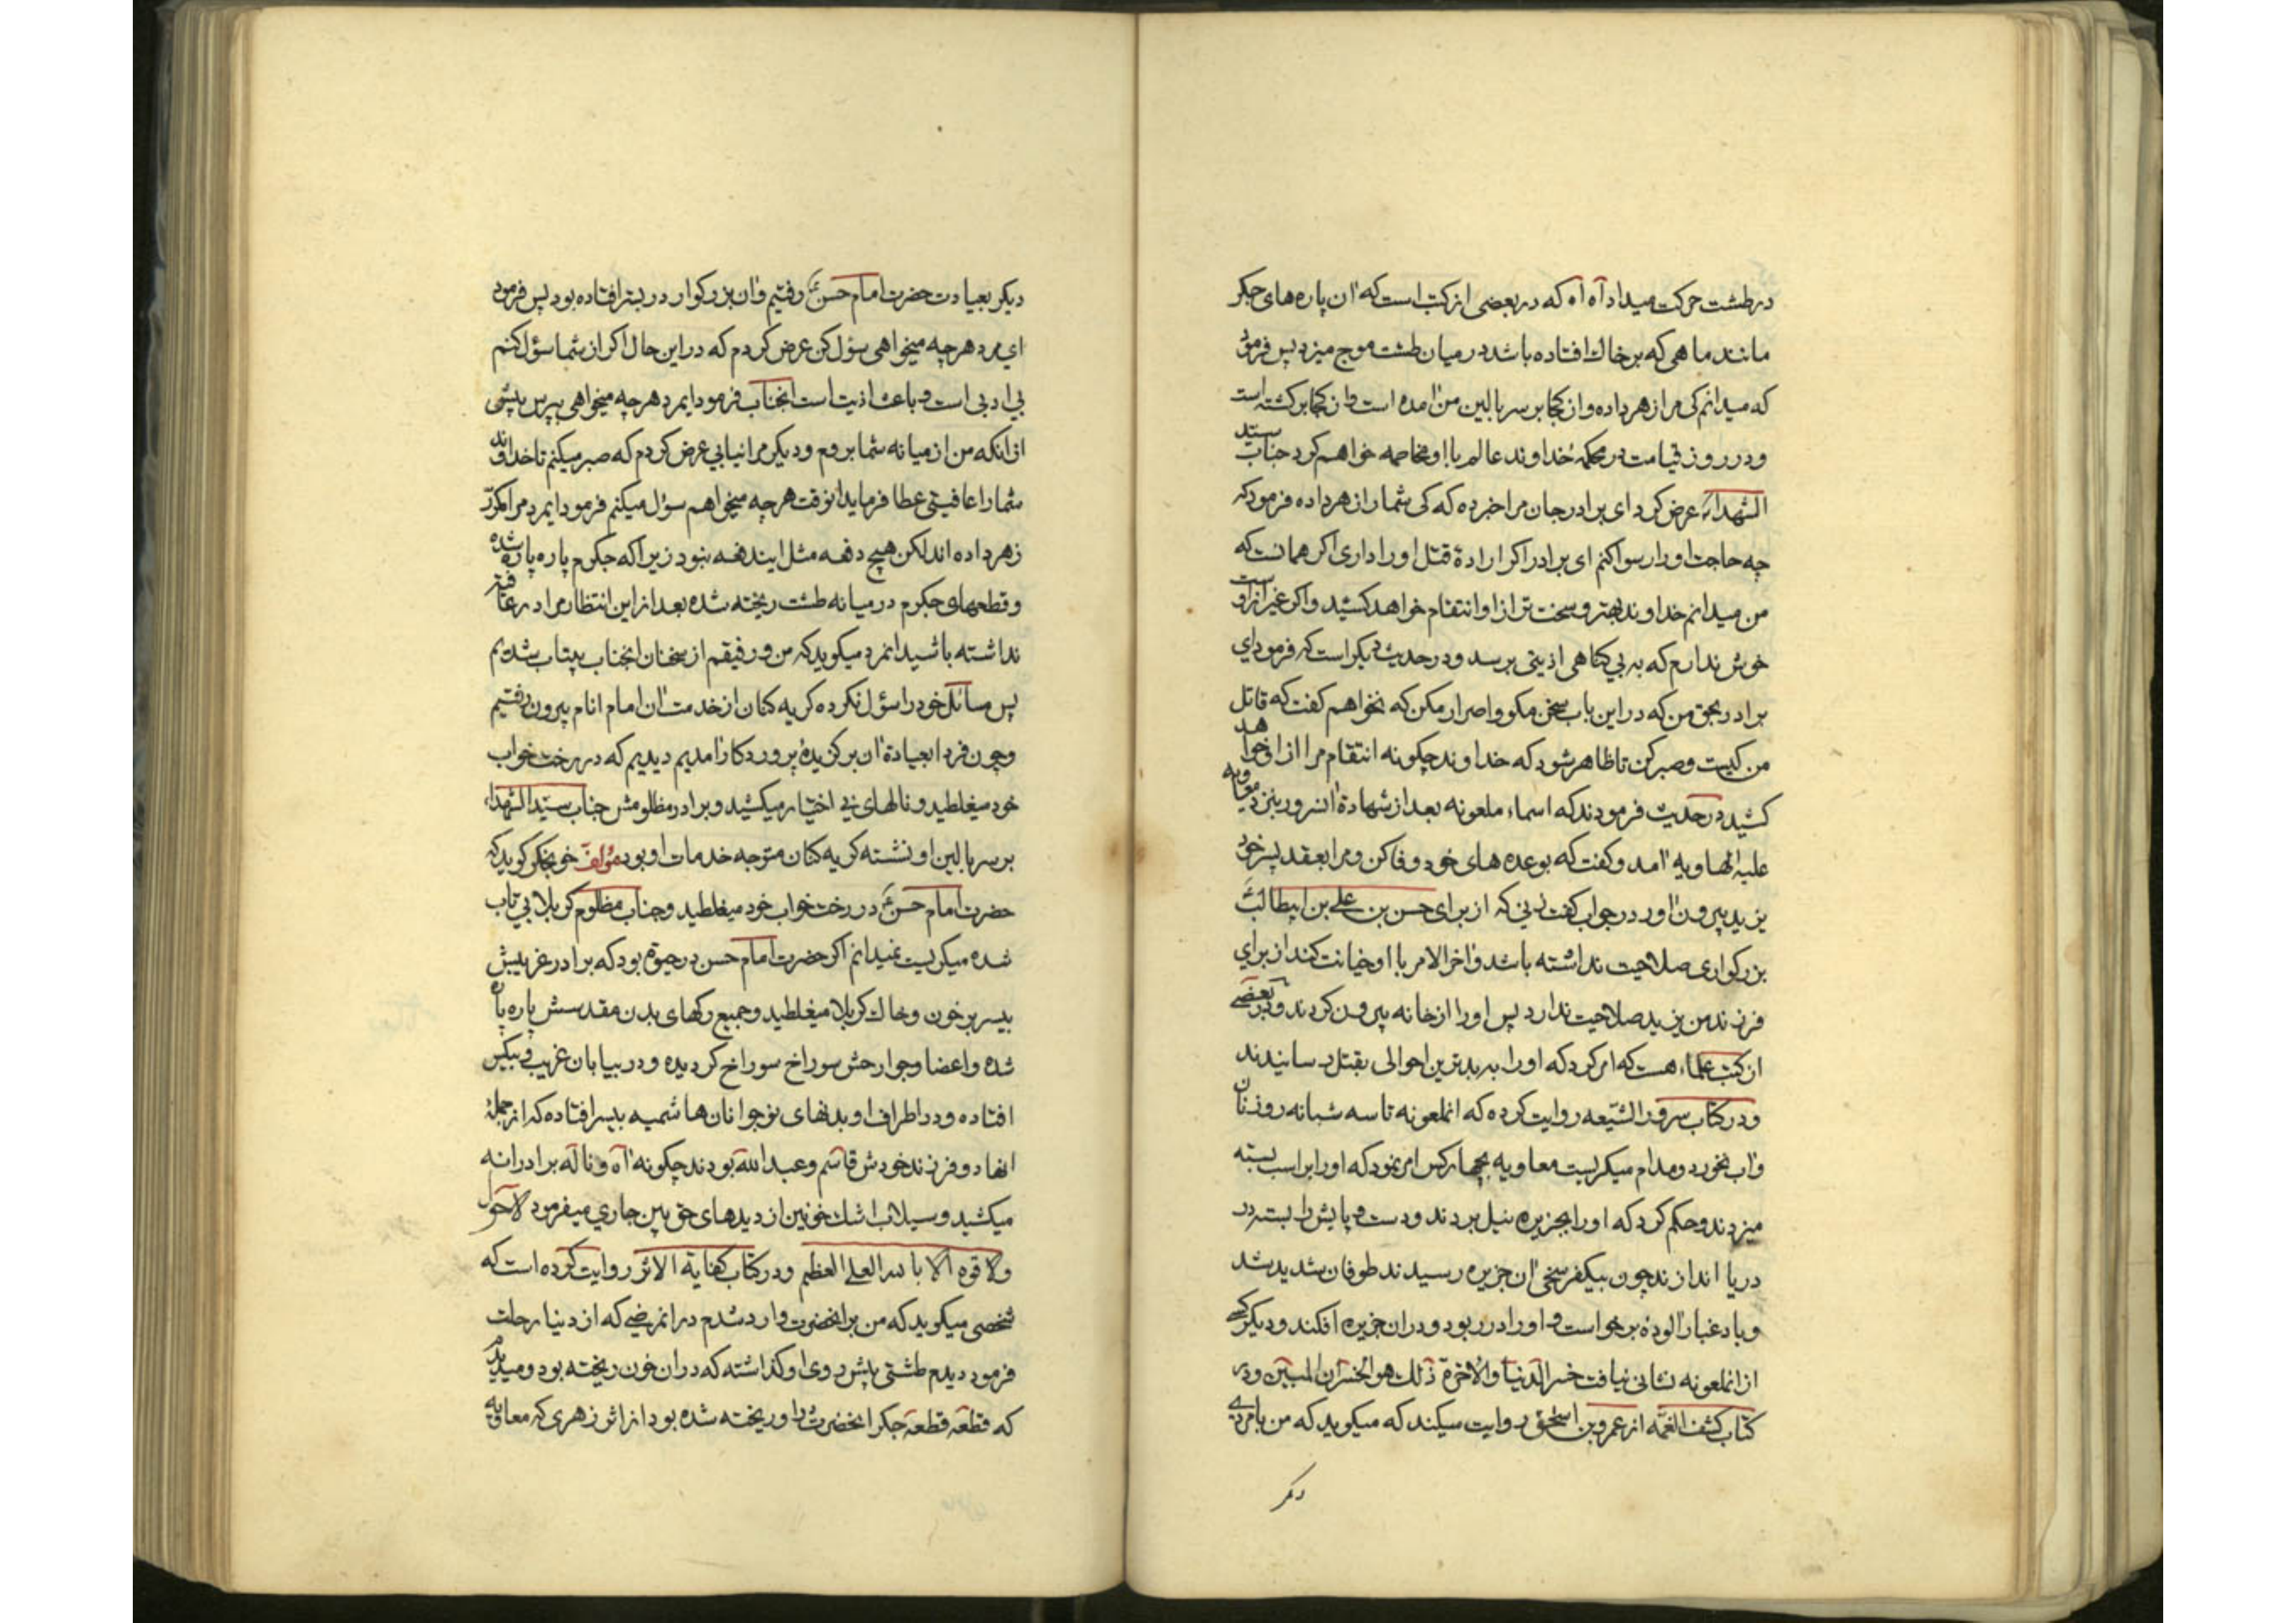 در طشت حرکت میداد آه آه که در بعضی از کتب است که آن پاره های جکر
مانند ماهی که بر خاک افتاده باشد در میان طشت موج میزد پس فرمود
که میدانم کی مرا زهر داده و از کجا بر سر بالین من آمده است و از کجا برکشته است
و در روز قیامت در محکمهٔ خداوند عالم با او مخاصمه خواهم کرد جناب سید
الشهداء عرض کرد ای برادر جان مرا خبر ده که کی شما را زهر داده فرمود که
چه حاجت او را رسوا کنم ای برادر اکر ارادهٔ قتل او را داری اکر همانست که
من میدانم خداوند بهتر و سخت تر از او انتقام خواهد کشید و اکر غیر از اوست
خوش ندارم که به بی کناهی اذیتی برسد و در حدیث دیکر است که فرمود ای
برادر بحق من که در این باب سخن مکو و اصرار مکن که نخواهم کفت که قاتل
من کیست و صبر کن تا ظاهر شود که خداوند چکونه انتقام مرا از او خواهد
کشید در حدیث فرمودند که اسماء ملعونه بعد از شهادة آنسرور بنزد معاویه
علیه الهاویه آمد و کفت که بوعده های خود وفا کن و مرا بعقد پسر خود
یزید بیرون آور در جواب کفت زنی که از برای حسن بن علی بن ابیطالب
بزرکواری صلاحیت نداشته باشد و آخر الامر با او خیانت کند از برای
فرزند من یزید صلاحیت ندارد پس او را از خانه بیرون کردند و در بعضی
از کتب علماء هست که امر کرد که او را به بدترین احوالی بقتل رسانیدند
و در کتاب سرور الشیعه روایت کرده که انملعونه تا سه شبانه روز نان
و آب نخورد و مدام میکریست معاویه بچهار کس امر نمود که او را بر اسب بسته
میزدند و حکم کرد که او را بجزیره نیل بردند و دست و پایش را بسته در
دریا اندازند چون بیکفرسخی آن جزیره رسیدند طوفان شدید شد
و باد غبار آلوده برخواست و او را در ربود و در ان جزیره افکند و دیکر کسی
از انملعونه نشانی نیافت خسر الدنیا والآخرة ذلك هو الخسران المبین و در
کتاب کشف الغمه از عمرو بن اسحق روایت میکند که میکوید که من با مردی
دیکر
دیکر بعیادت حضرت امام حسن رفتیم و آن بزرکوار در بستر افتاده بود پس فرمود
ای مرد هر چه میخواهی سؤل کن عرض کردم که در این حال اکر از شما سؤل کنم
بی ادبی است و باعث اذیت است انجناب فرمود ایمرد هر چه میخواهی بپرس پیش
از انکه من از میانه شما بروم و دیکر مرا نیابی عرض کردم که صبر میکنم تا خداوند
شما را عافیتی عطا فرماید انوقت هر چه میخواهم سؤل میکنم فرمود ایمرد مرا مکرر
زهر داده اند لکن هیچ دفعه مثل ایندفعه نبود زیرا که جکرم پاره پاره شده
و قطعهای جکرم در میانه طشت ریخته شده بعد از این انتظار مرا در عافیت
نداشته باشید انمرد میکوید که من و رفیقم از سخنان انجناب بیتاب شدیم
پس مسائل خود را سؤل نکرده کریه کنان از خدمت آن امام انام بیرون رفتیم
و چون فردا بعیادة آن برکزیدهٔ پروردکار آمدیم دیدیم که در رخت خواب
خود میغلطید و نالهای بی اختیار میکشید و برادر مظلومش جناب سید الشهداء
بر سر بالین او نشسته کریه کنان متوجه خدمات او بود مؤلف خونجکر کوید که
حضرت امام حسن در رخت خواب خود میغلطید و جناب مظلوم کربلا بی تاب
شده میکریست نمیدانم اکر حضرت امام حسن در حیوة بود که برادر غریبش
بیسر بر خون و خاک کربلا میغلطید و جمیع رکهای بدن مقدسش پاره پاره
شده و اعضا و جوارحش سوراخ سوراخ کردیده و در بیابان غریب و بیکس
افتاده و در اطراف او بدنهای نوجوانان هاشمیه بیسر افتاده که از جملهٔ
انها دو فرزند خودش قاسم و عبد الله بودند چکونه آه و ناله برادرانه
میکشید و سیلاب اشک خونین از دیدهای حق بین جاری میفرمود لا حول
ولا قوة الا بالله العلی العظیم و در کتاب کفایة الاثر روایت کرده است که
شخصی میکوید که من بر انحضرت وارد شدم در انمرضی که از دنیا رحلت
فرمود دیدم طشتی پیش روی او کذاشته که در ان خون ریخته بود و میدیدم
که قطعه قطعه جکر انحضرت در او ریخته شده بود از اثر زهری که معاویه